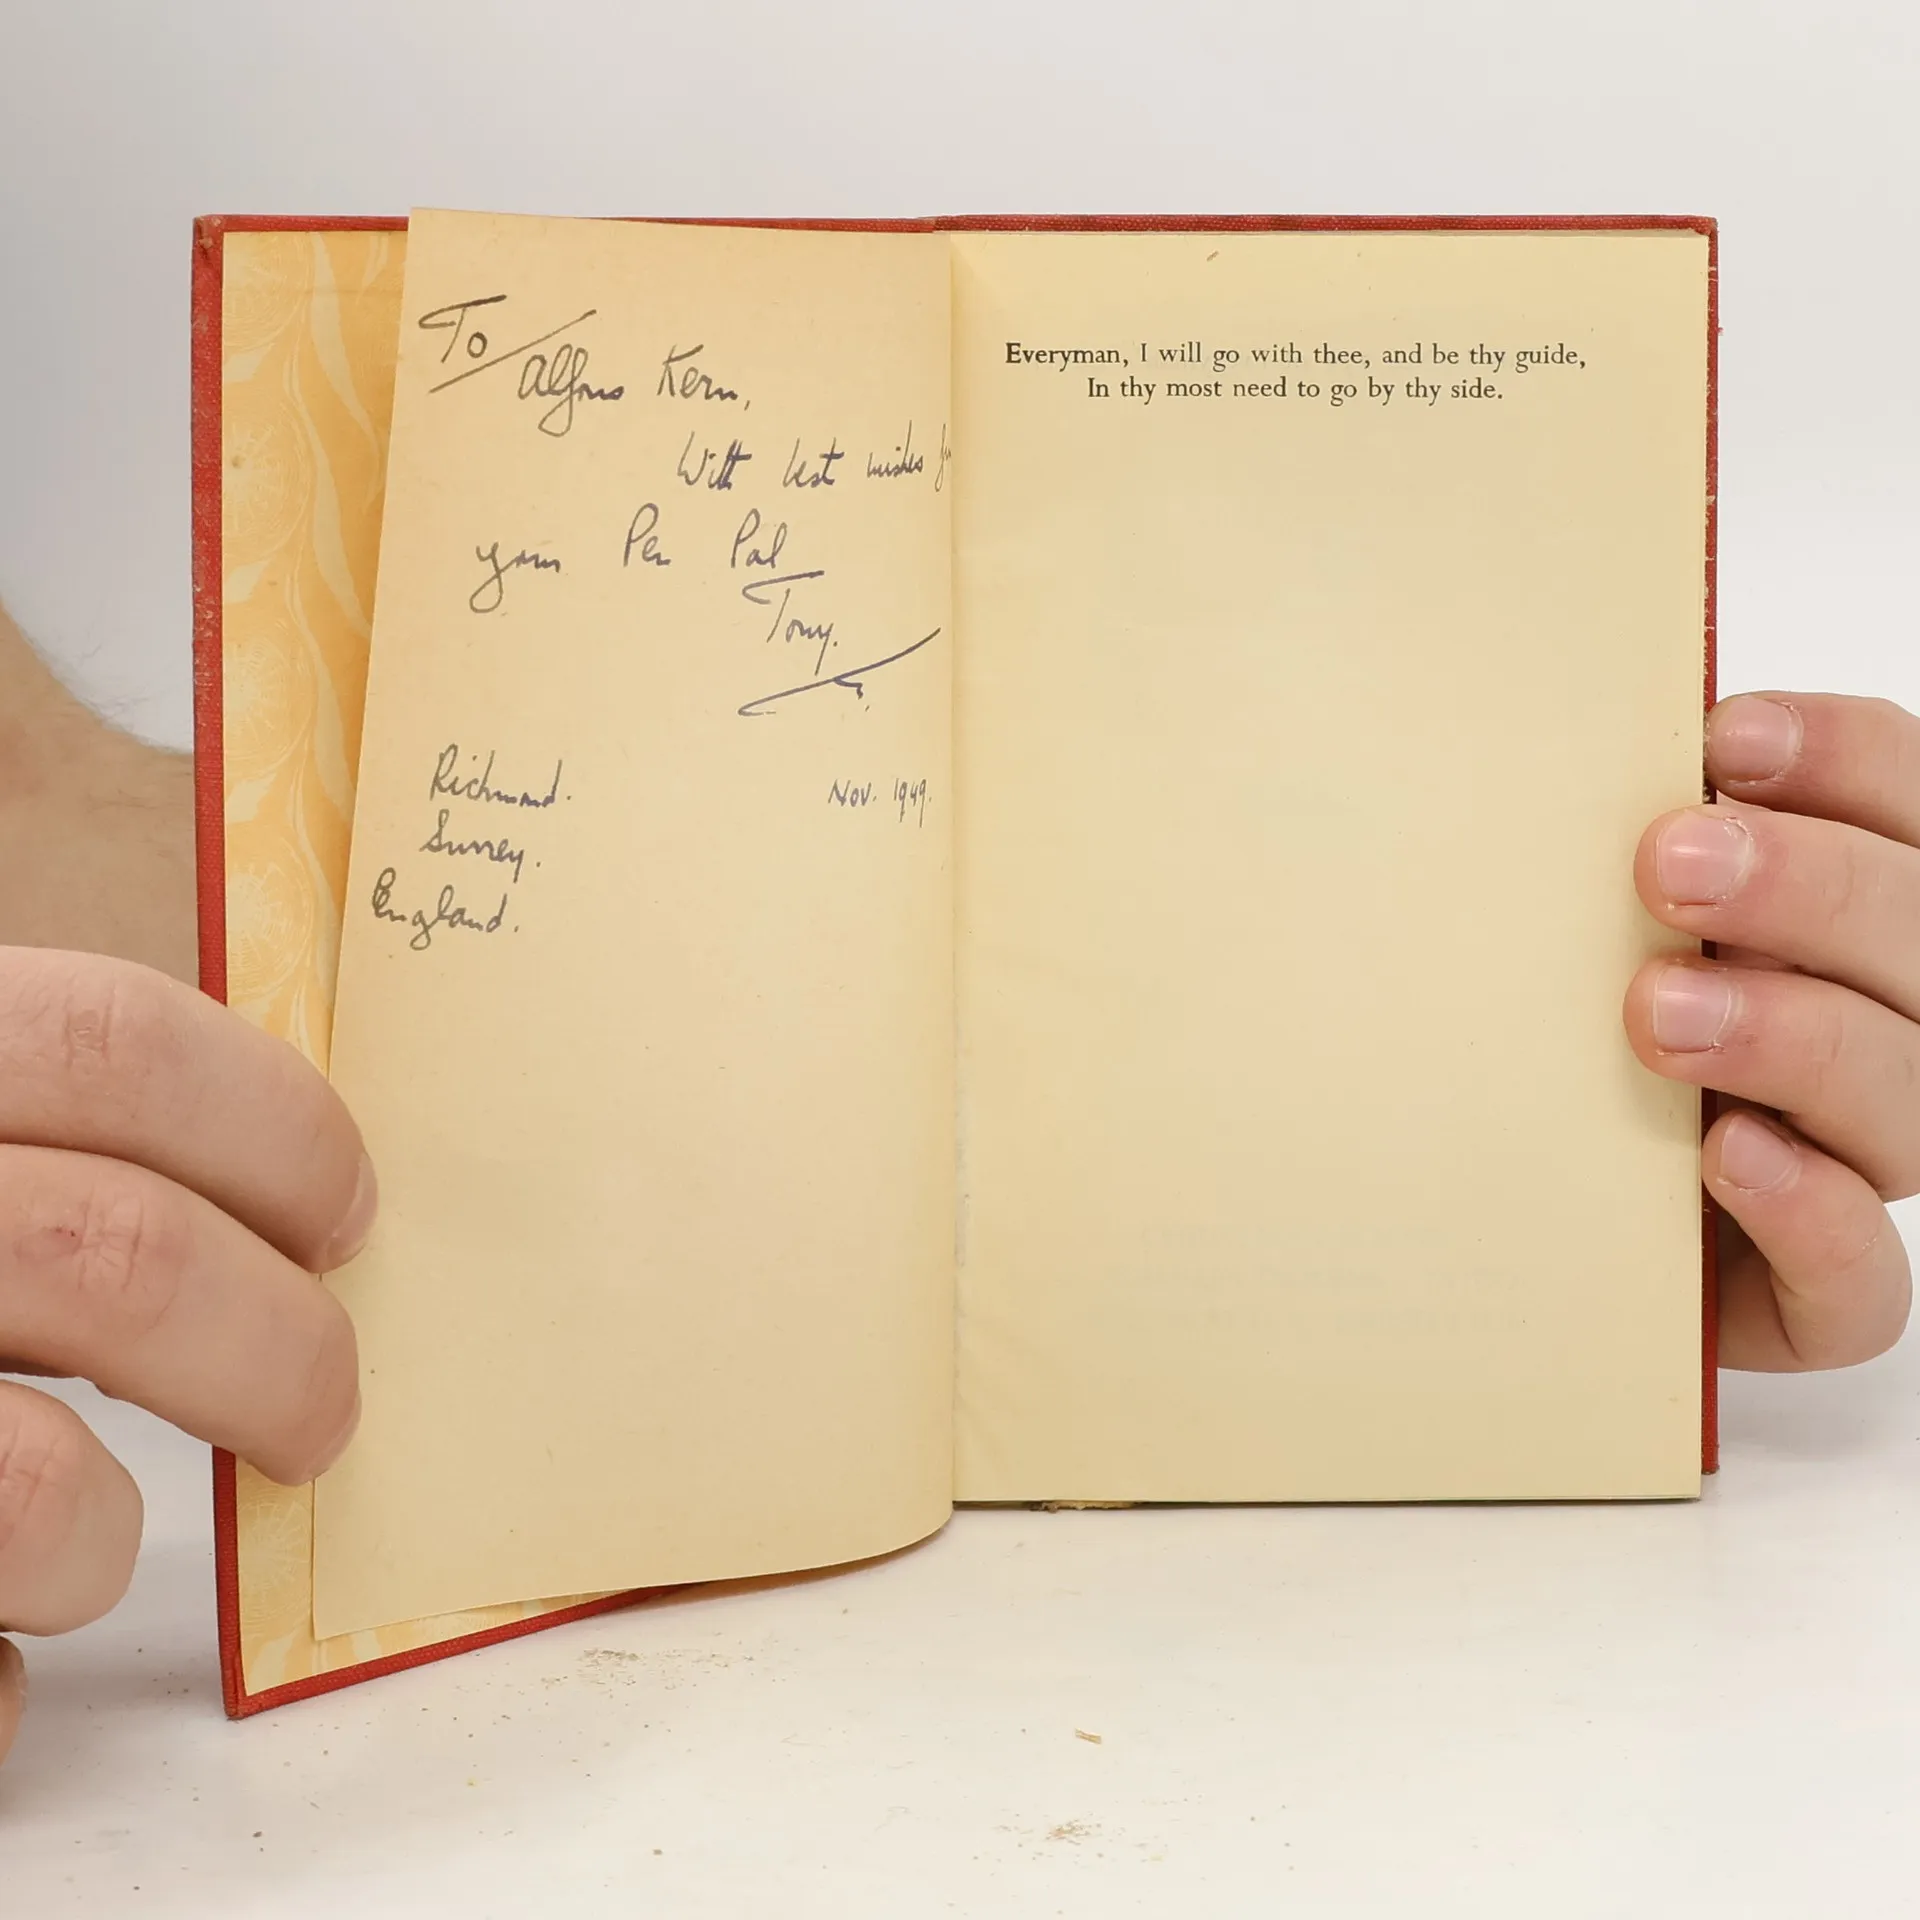 To
Alfons Kern,
With best wishes
your Pen Pal
Tony.
Richmond.
Nov. 1949.
Surrey.
England.
Everyman, I will go with thee, and be thy guide,
In thy most need to go by thy side.